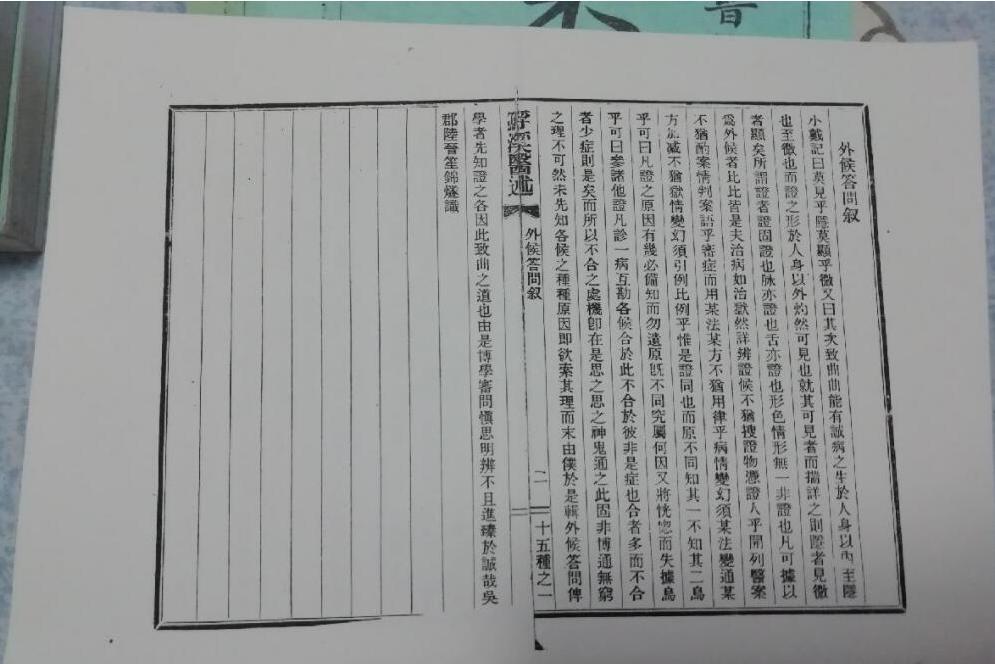 晉
外候答問叙
小戴記曰莫見乎隱莫顯乎微又曰其次致曲曲能有誠病之生於人身以內至隱
也至微也而證之形於人身以外灼然可見也就其可見者而揣詳之則隱者見微
者顯矣所謂證者證固證也脉亦證也舌亦證也形色情形無一非證也凡可據以
爲外候者比比皆是夫治病如治獄然詳辨證候不猶搜證物憑證人乎開列醫案
不猶酌案情判案語乎審症而用某法某方不猶用律乎病情變幻須某法變通某
方加減不猶獄情變幻須引例比例乎惟是證同也而原不同知其一不知其二烏
乎可曰凡證之原因有幾必備知而勿遺原旣不同究屬何因又將恍惚而失據烏
乎可曰參諸他證凡診一病互勘各候合於此不合於彼非是症也合者多而不合
者少症則是矣而所以不合之處機卽在是思之思之神鬼通之此固非博通無窮
之理不可然未先知各候之種種原因即欲索其理而末由僕於是輯外候答問俾
外候答問叙
二
十五種之一
學者先知證之各因此致曲之道也由是博學審問愼思明辨不且進臻於誠哉吳
郡陸晉笙錦燧識